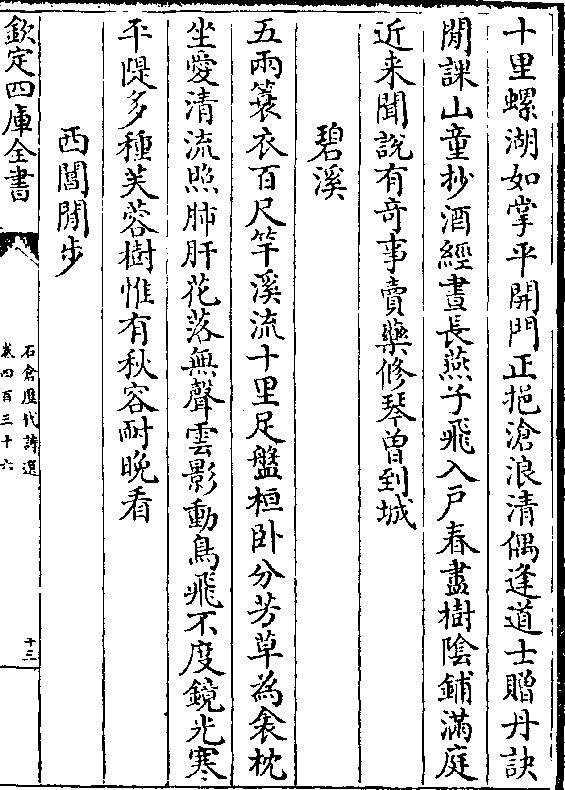 十里螺湖如掌平開門正挹滄浪清偶逢道士贈丹訣
閒課山童抄酒經晝長燕子飛入戸春盡樹陰鋪滿庭
近来聞説有竒事賣藥修琴曽到城
碧溪
五兩蓑衣百尺竿溪流十里足盤桓卧分芳草為衾枕
坐愛清流照肺肝花落無聲雲影動鳥飛不度鏡光寒
平隄多種芙蓉樹惟有秋容耐晚看
西閣閒步
欽定四庫全書
石倉歷代詩選
卷四百三十六
十三